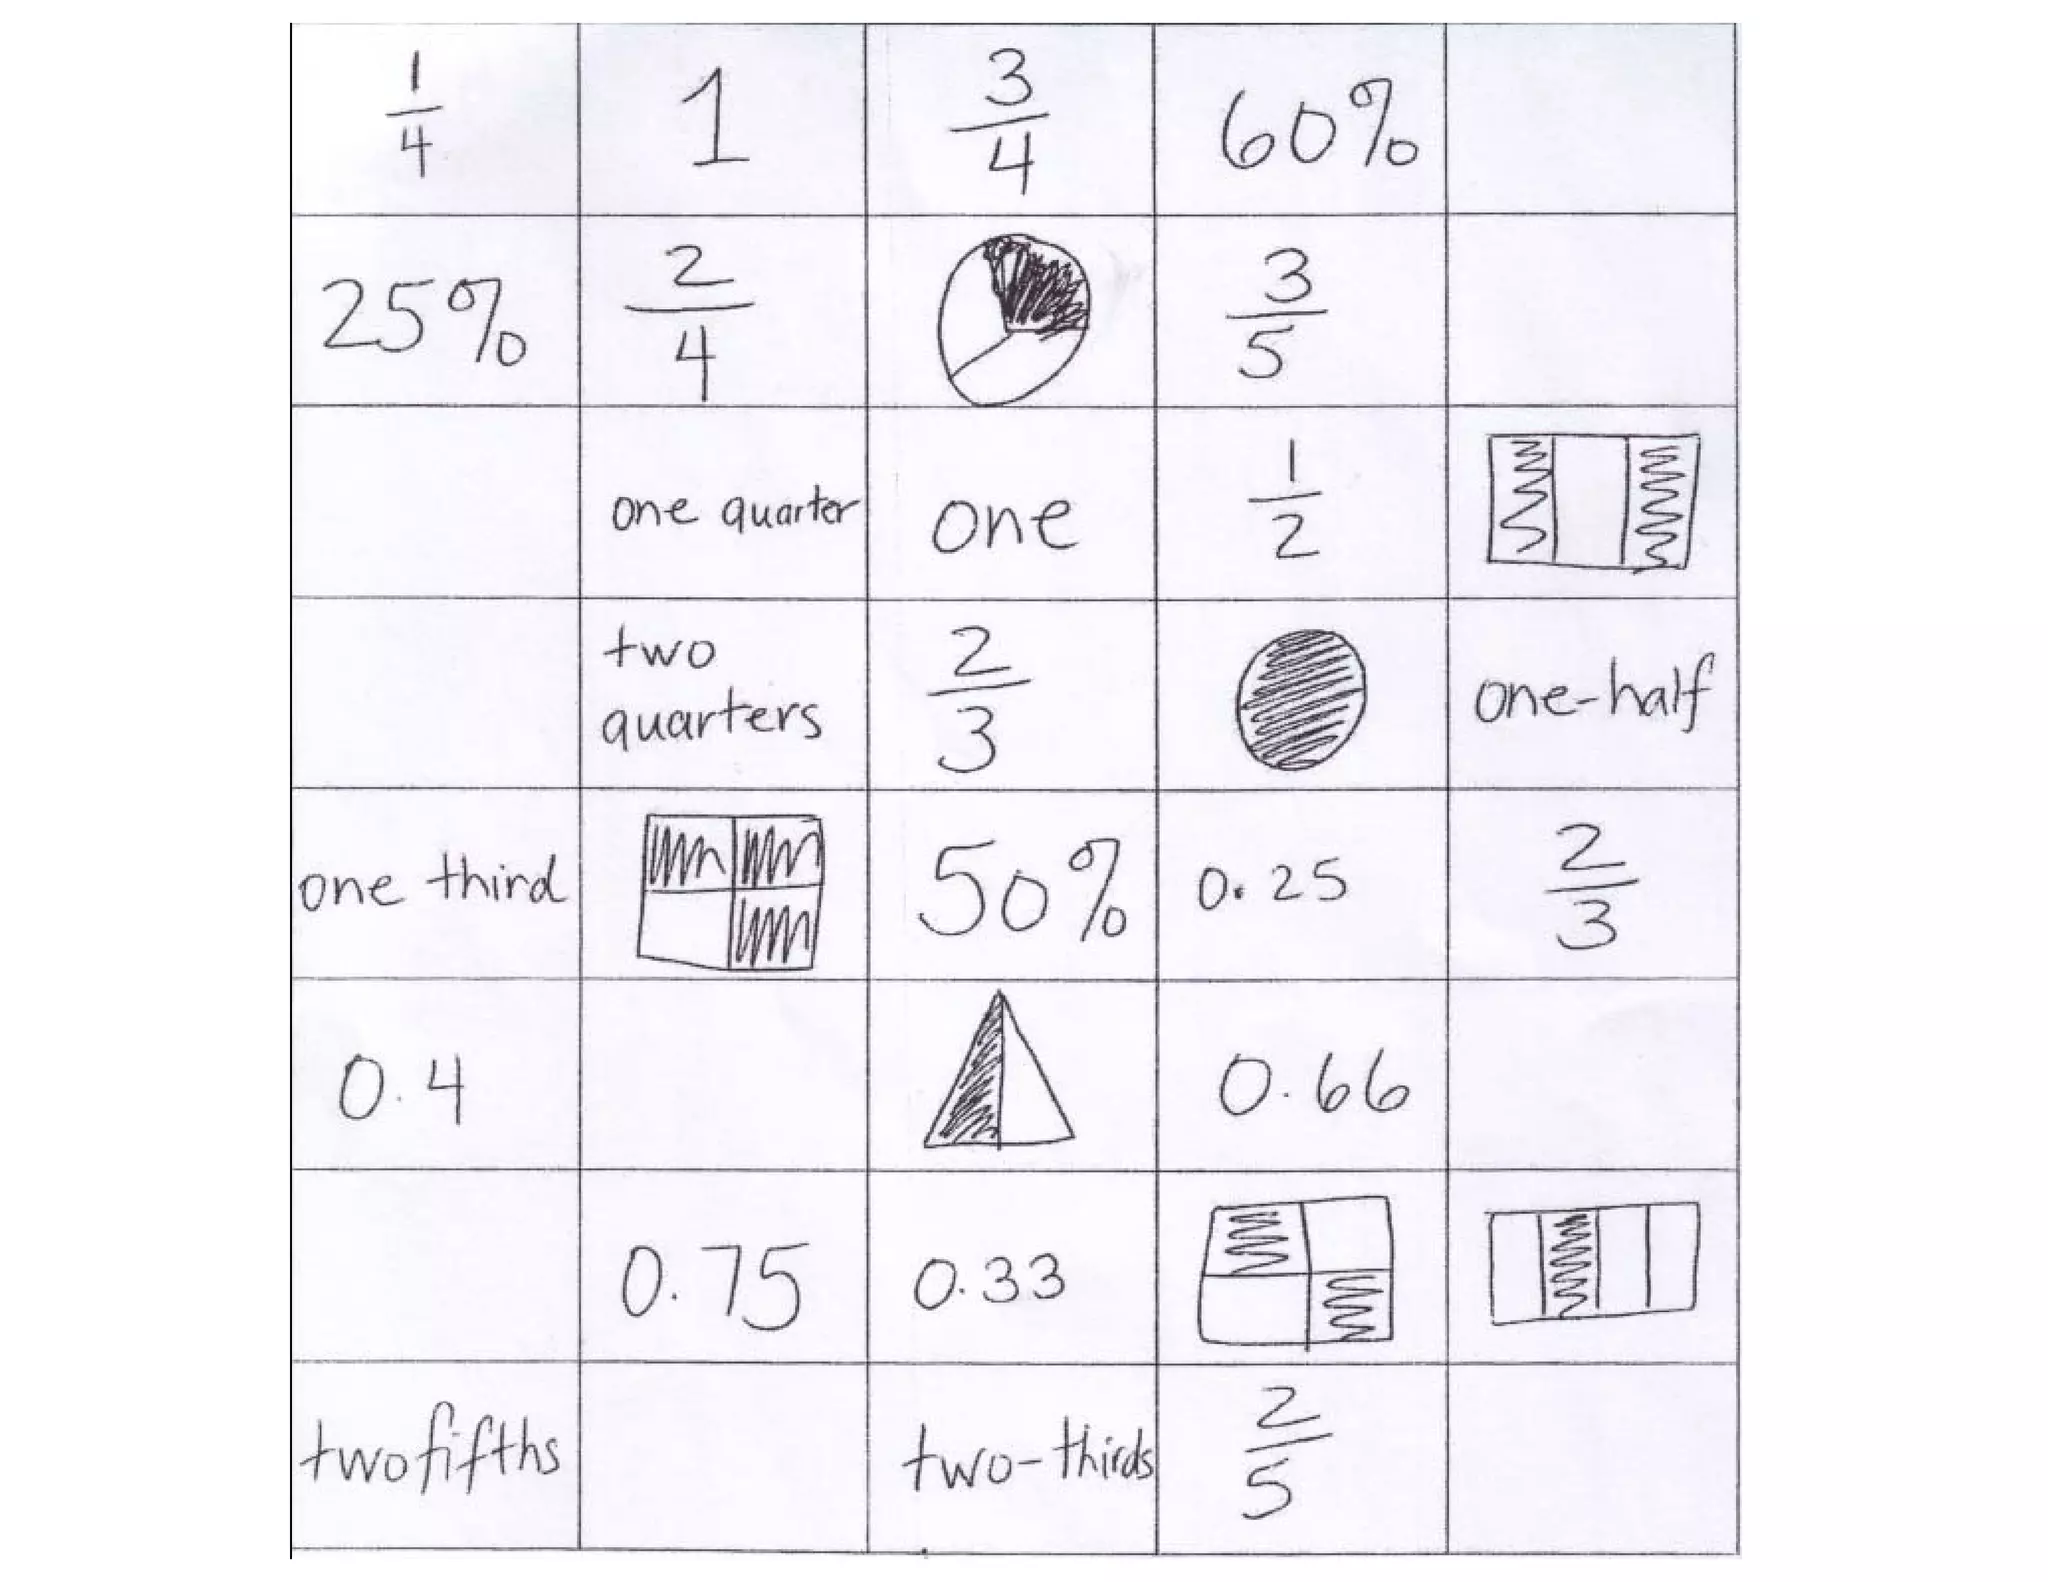 1/4 1 3/4 60%
25% 2/4 3/5
one quarter one 1/2
two quarters 2/3 one-half
one third 50% 0.25 2/3
0.4 0.66
0.75 0.33
two fifths two-thirds 2/5